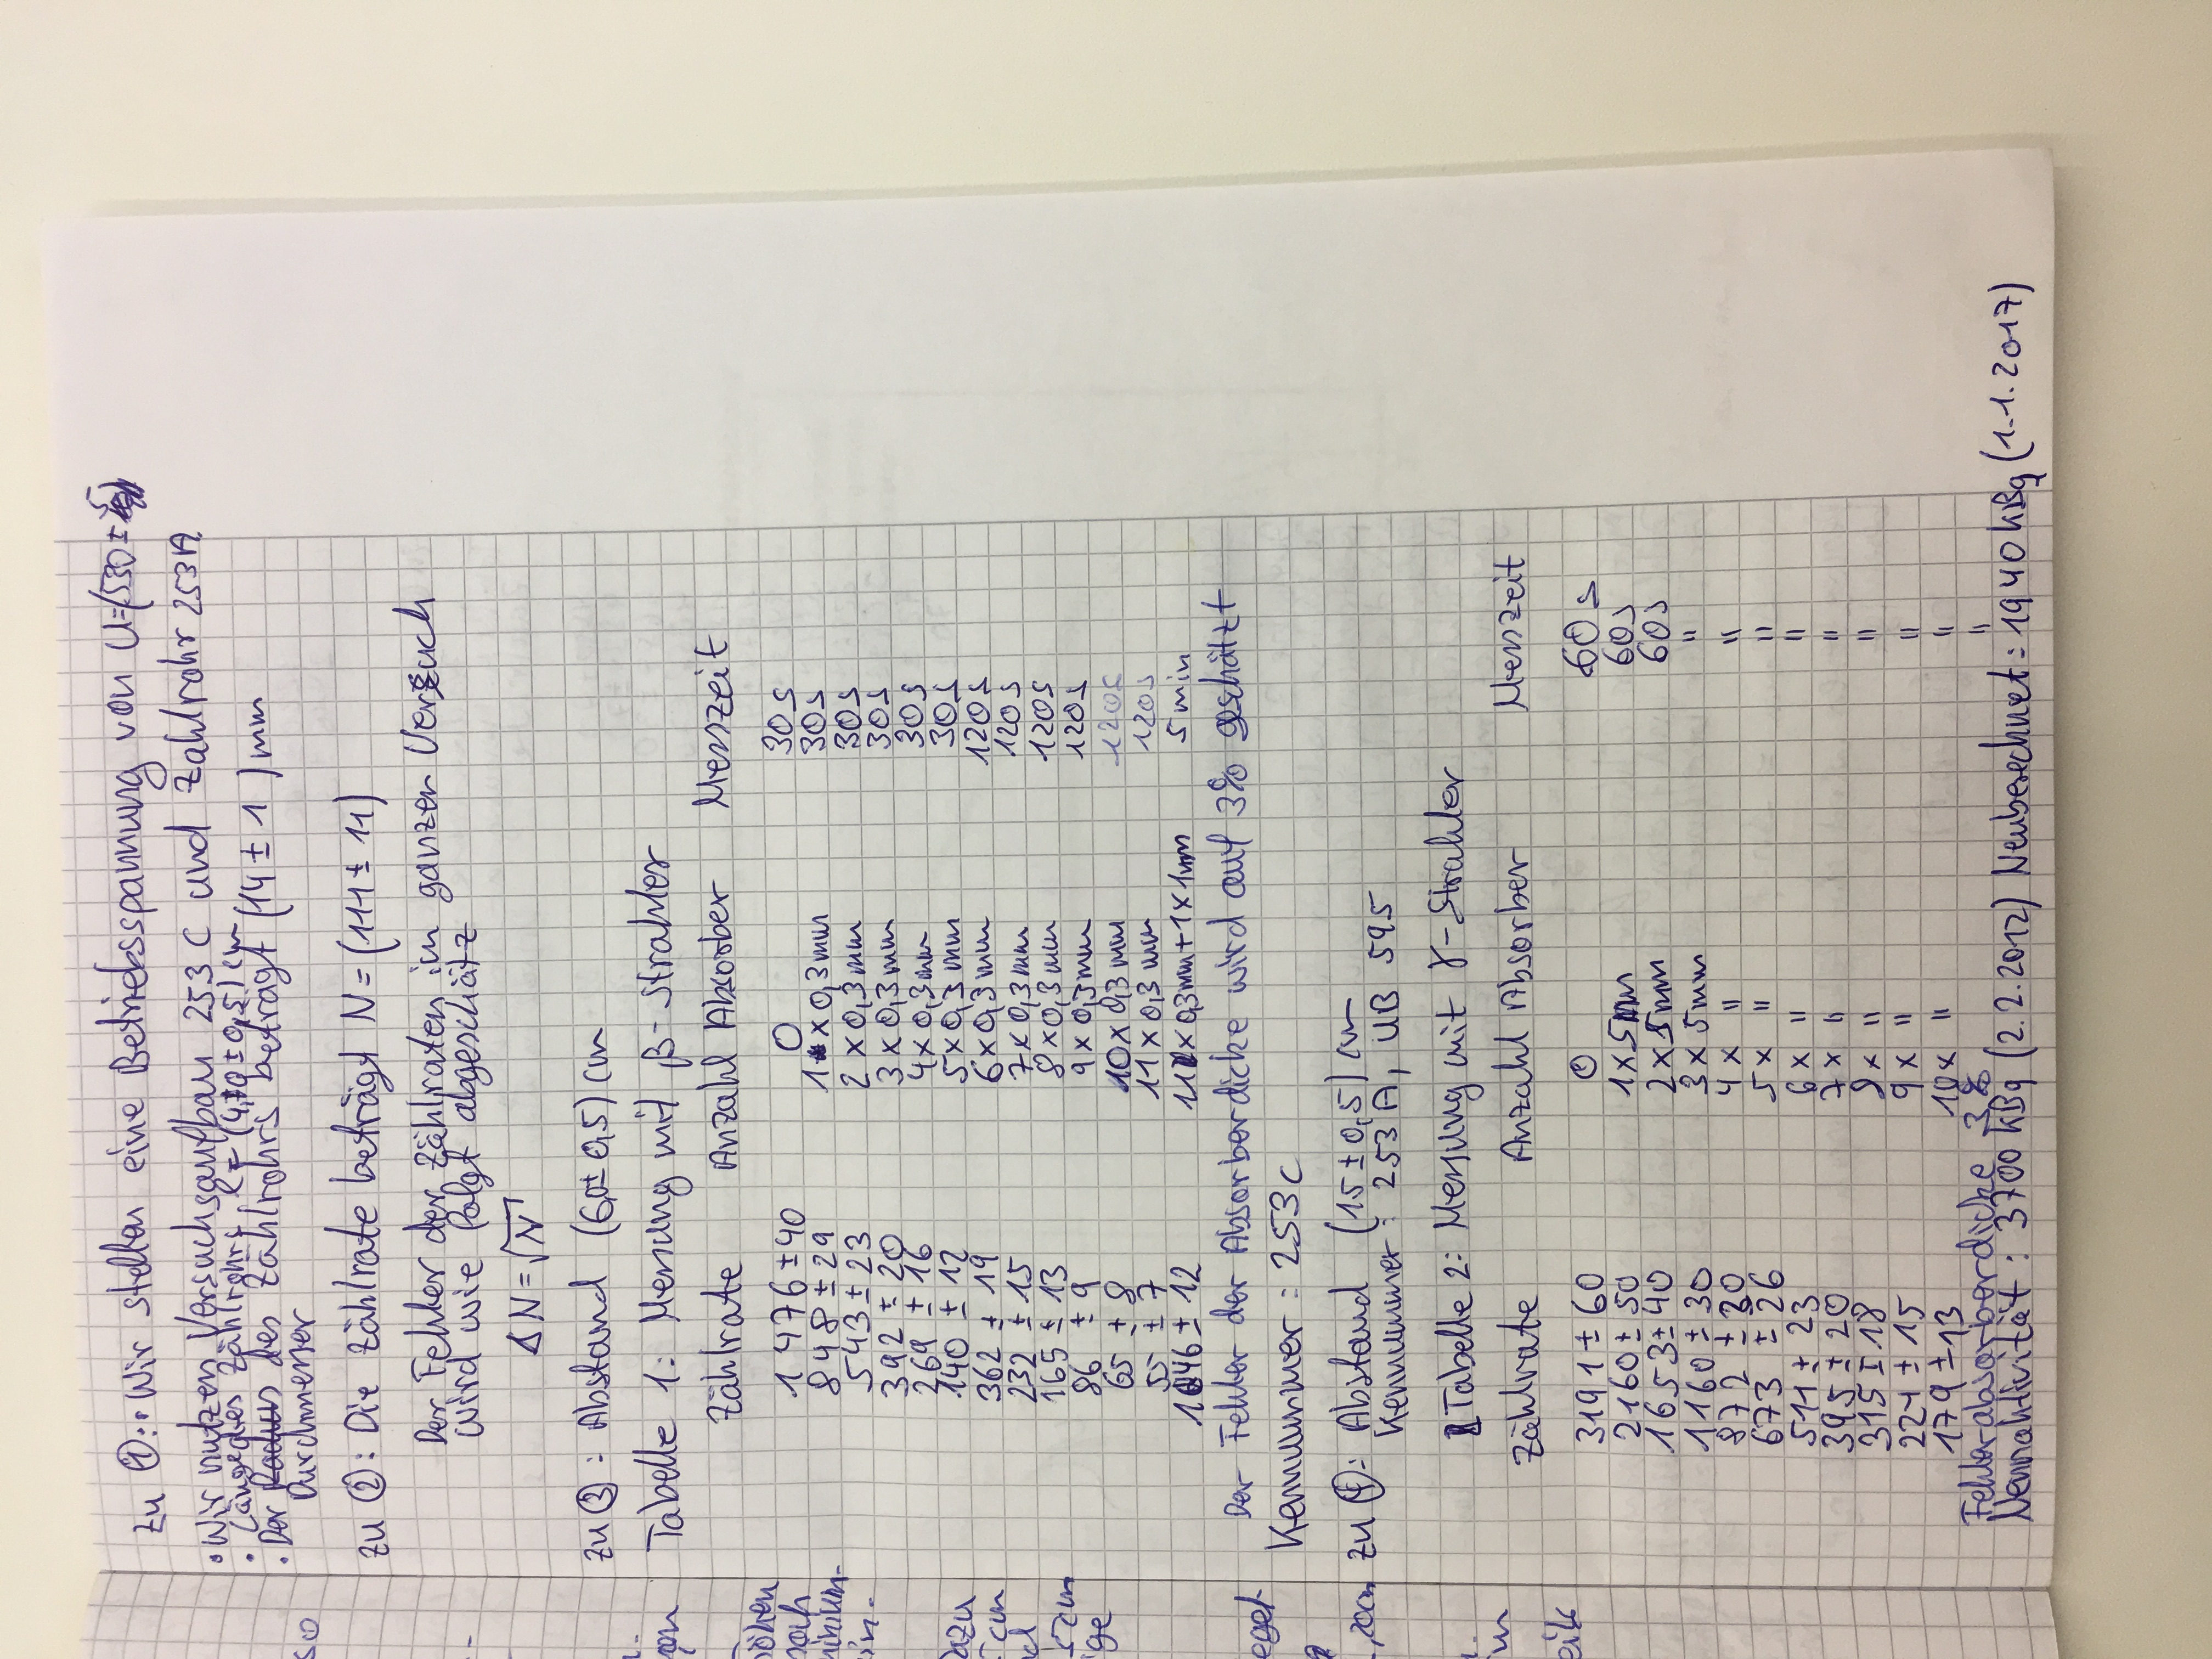 zu ①: • Wir stellen eine Betriebsspannung von U=(530 ± 5)
• Wir nutzen Versuchsaufbau 253 C und Zählrohr 253A
• Länge des Zählrohrs l = (4,0 ± 0,5) cm
• Der des Zählrohrs beträgt (14 ± 1 ) mm
Durchmesser
zu ②: Die Zählrate beträgt N = (111 ± 11)
Der Fehler der Zählraten im ganzen Versuch
wird wie folgt abgeschätz
ΔN = √N
zu ③: Abstand (6,0 ± 0,5) cm
Tabelle 1: Messung mit β-Strahler
Zählrate Anzahl Absorber Messzeit
1476 ± 40 0 30s
848 ± 29 1 x 0,3mm 30s
543 ± 23 2 x 0,3mm 30s
392 ± 20 3 x 0,3mm 30s
269 ± 16 4 x 0,3mm 30s
140 ± 12 5 x 0,3mm 30s
362 ± 19 6 x 0,3mm 120s
232 ± 15 7 x 0,3mm 120s
165 ± 13 8 x 0,3mm 120s
86 ± 9 9 x 0,3mm 120s
65 ± 8 10 x 0,3mm 120s
55 ± 7 11 x 0,3mm 120s
146 ± 12 11 x 0,3mm + 1 x 1mm 5 min
Der Fehler der Absorberdicke wird auf 3% geschätzt
Kennummer: 253c
zu ④: Abstand (15 ± 0,5) cm
Kennummer: 253 A, UB 595
Tabelle 2: Messung mit γ-Strahler
Zählrate Anzahl Absorber Messzeit
3191 ± 60 0 60s
2160 ± 50 1 x 5mm 60s
1653 ± 40 2 x 5mm 60s
1160 ± 30 3 x 5mm "
872 ± 30 4 x " "
673 ± 26 5 x " "
511 ± 23 6 x " "
395 ± 20 7 x " "
315 ± 18 8 x " "
221 ± 15 9 x " "
179 ± 13 10 x " "
Fehler absorberdicke 3% "
Nennaktivität: 3700 kBq (2.2.2012) Neuberechnet: 1940 kBq (1.1.2017)